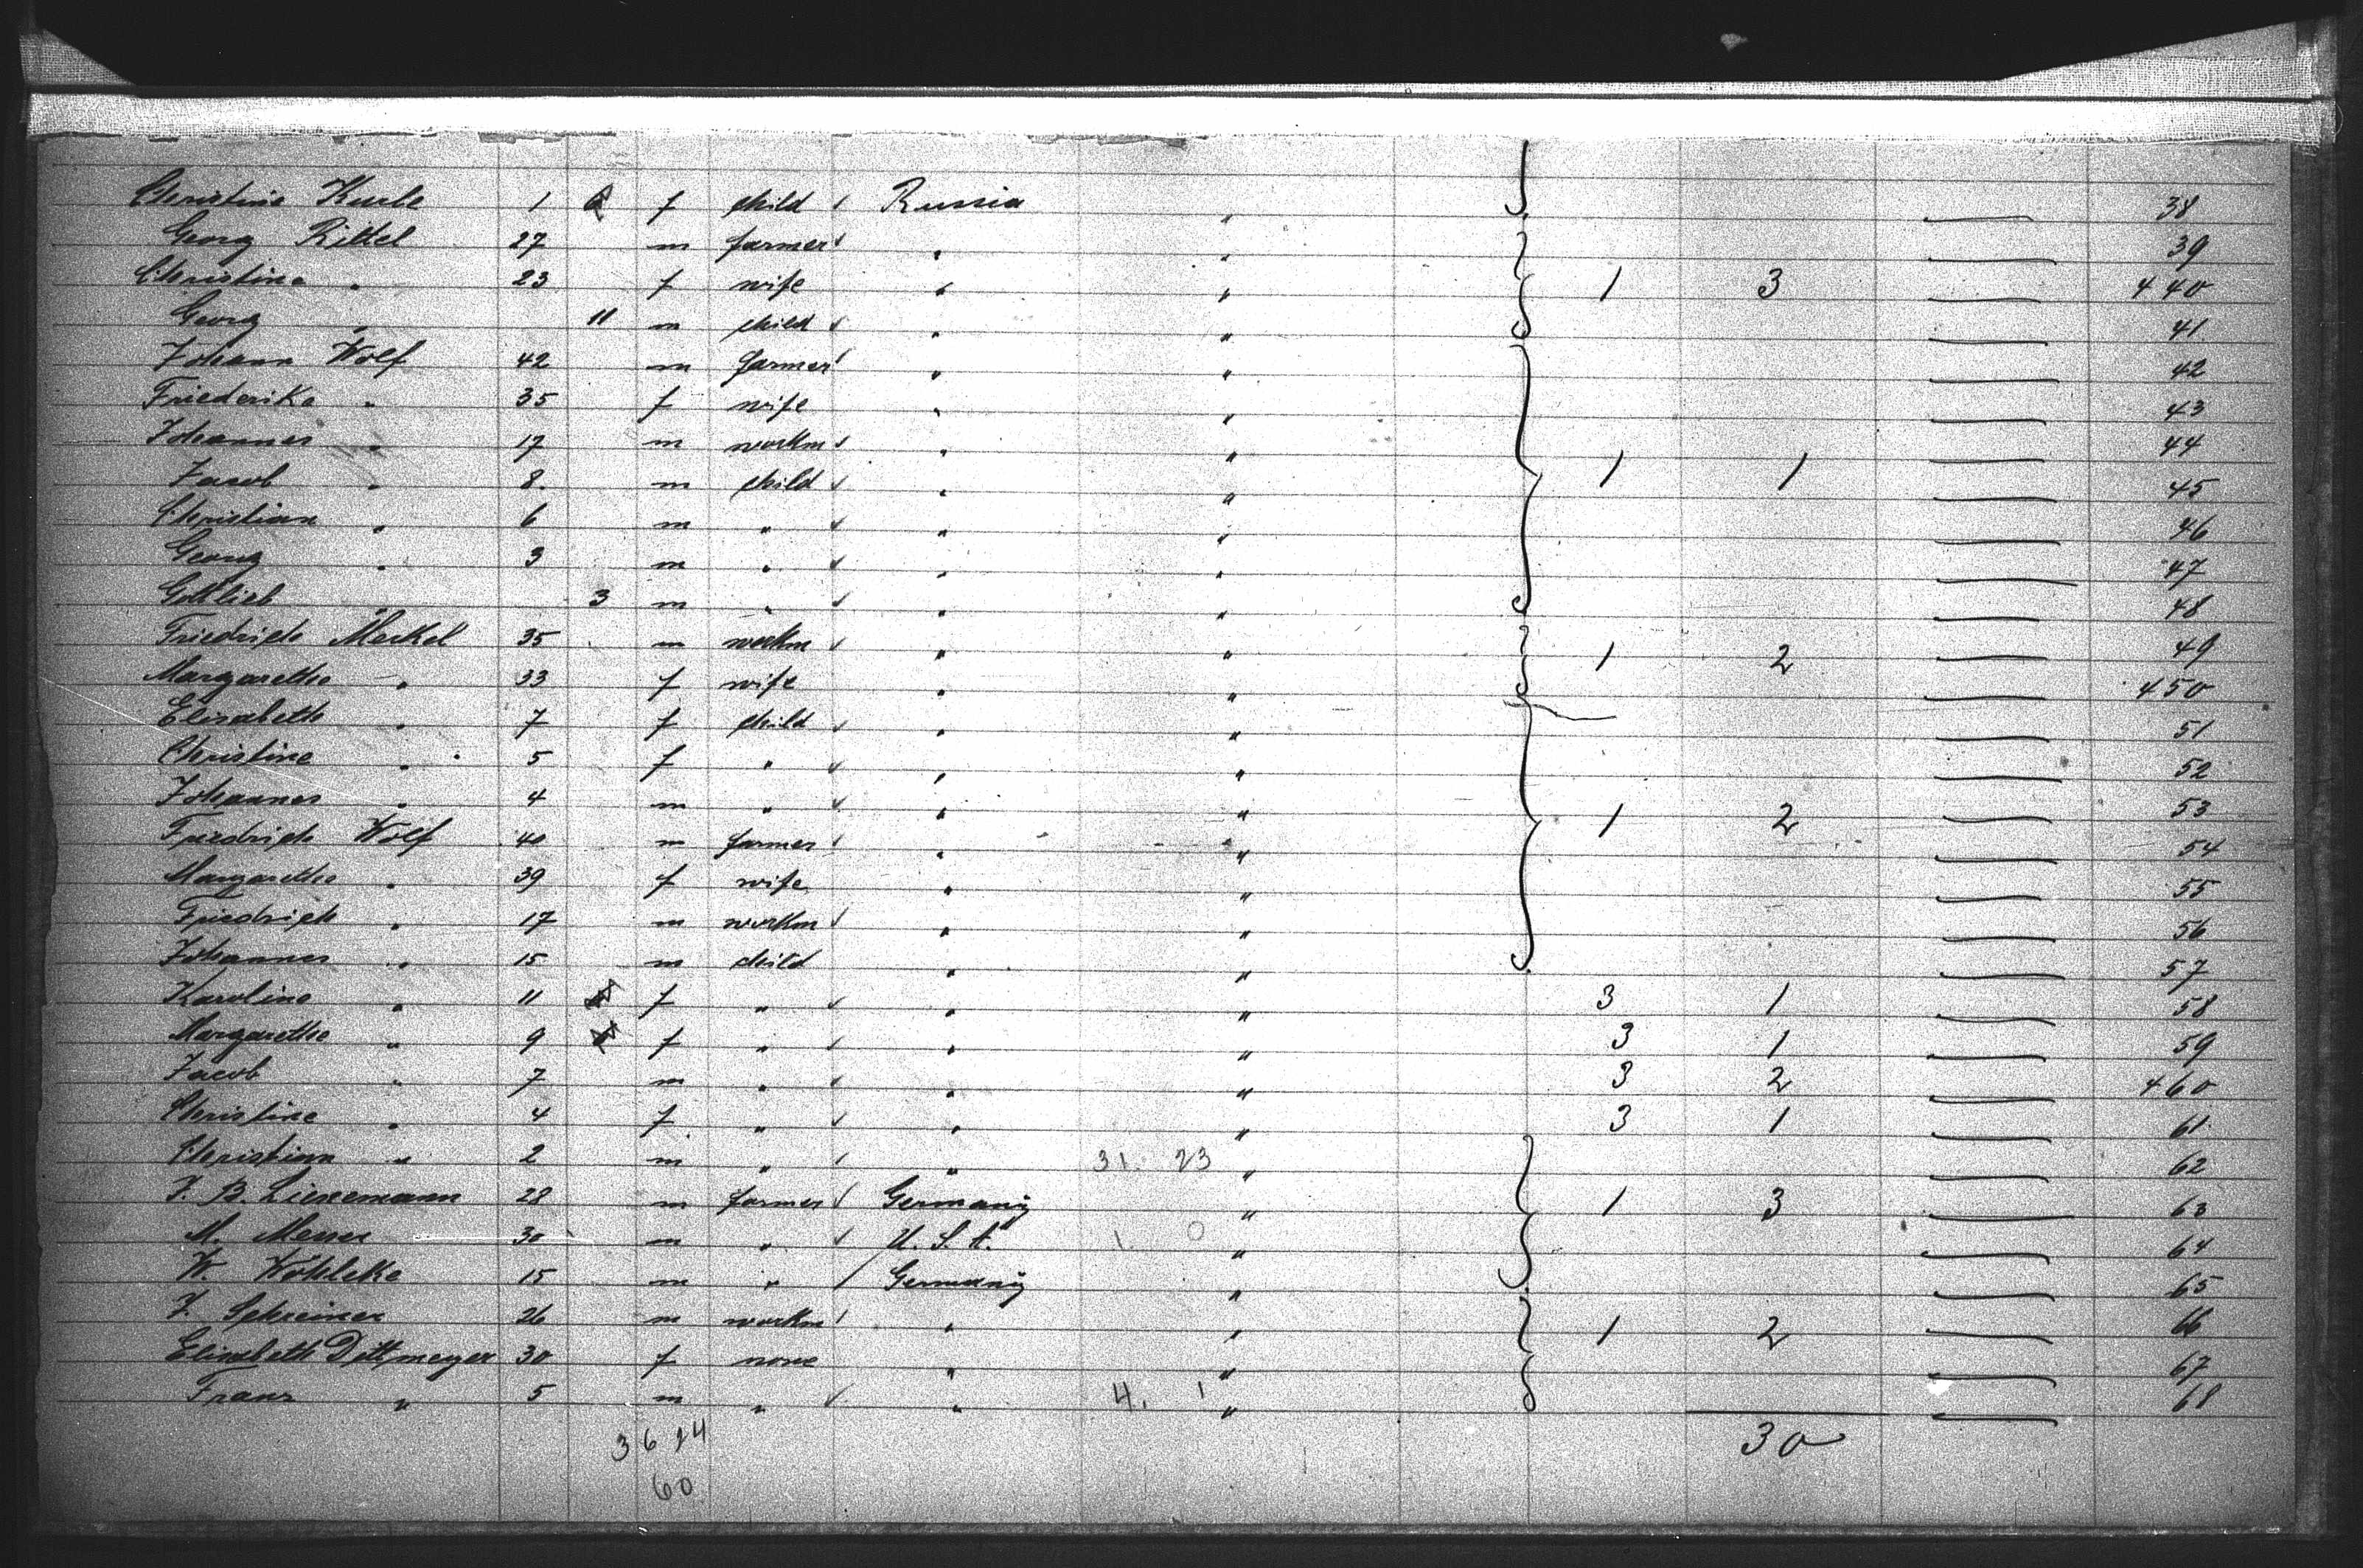 Christine Kurle 1 f child ✓ Russia " 38
Georg Rittel 27 m farmer ✓ " " 39
Christine " 23 f wife " " 1 3 440
Georg " 11 m child ✓ " " 41
Johann Wolf 42 m farmer ✓ " " 42
Friederike " 35 f wife " " 43
Johannes " 17 m workm ✓ " " 44
Jacob " 8 m child ✓ " " 1 1 45
Christian " 6 m " ✓ " " 46
Georg " 3 m " ✓ " " 47
Gottlieb " 3 m " ✓ " " 48
Friedrich Merkel 35 m workm ✓ " " 1 2 49
Margarethe " 33 f wife " " 450
Elisabeth " 7 f child ✓ " " 51
Christine " 5 f " ✓ " " 52
Johannes " 4 m " ✓ " " 53
Friedrich Wolf 40 m farmer ✓ " " 1 2 54
Margarethe " 39 f wife " " 55
Friedrich " 17 m workm ✓ " " 56
Johannes " 15 m child " " 57
Karoline " 11 f " ✓ " " 3 1 58
Margarethe " 9 f " ✓ " " 3 1 59
Jacob " 7 m " ✓ " " 3 2 460
Christine " 4 f " ✓ " " 3 1 61
Christian " 2 m " ✓ " 31. 23 " 62
J. B. Lienemann 28 m farmer ✓ Germany " 1 3 63
M. 30 m " ✓ U. S. A. 1. 0 " 64
W. Wöhleke 15 m " ✓ Germany " 65
J. Schreiner 26 m workm ✓ " " 1 2 66
Elisabeth Dettmeyer 30 f none " " 67
Franz " 5 m " ✓ " 4. 1 " 68
36 24 30
60